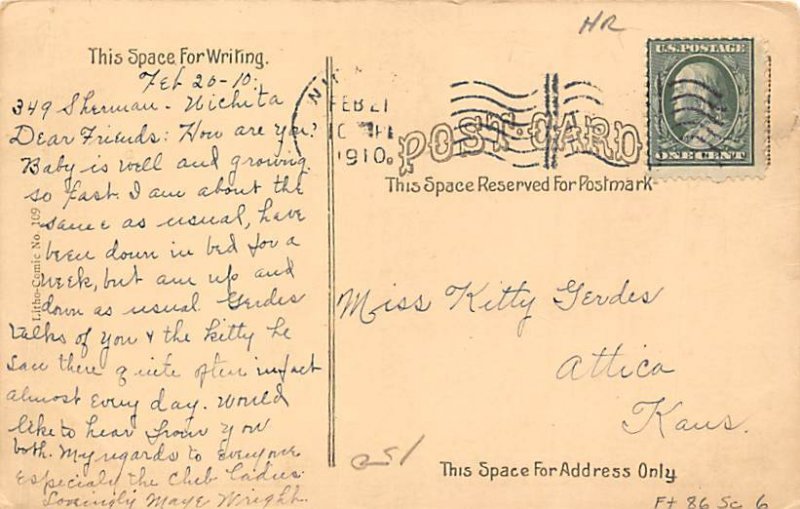 HR
This Space For Writing.
Feb 20-10.
349 Sherman - Wichita
Dear Friends: How are you?
Baby is well and growing
so fast. I am about the
same as usual, have
been down in bed for a
week, but am up and
down as usual. Gerdes
talks of you & the kitty he
saw there quite often infact
almost every day. Would
like to hear from you
both. My regards to everyone
especially the Club Ladies
Lovingly Maye Wright.
Litho-Comic No. 109
FEB 21
1910.
U.S. POSTAGE
ONE CENT
POST CARD
This Space Reserved For Postmark
Miss Kitty Gerdes
Attica
Kans.
This Space For Address Only
Ft 86 Sc 6